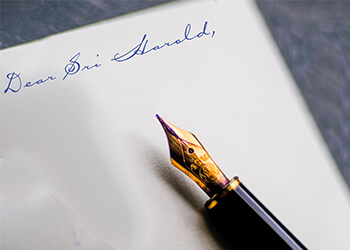 Dear Sri Harold,